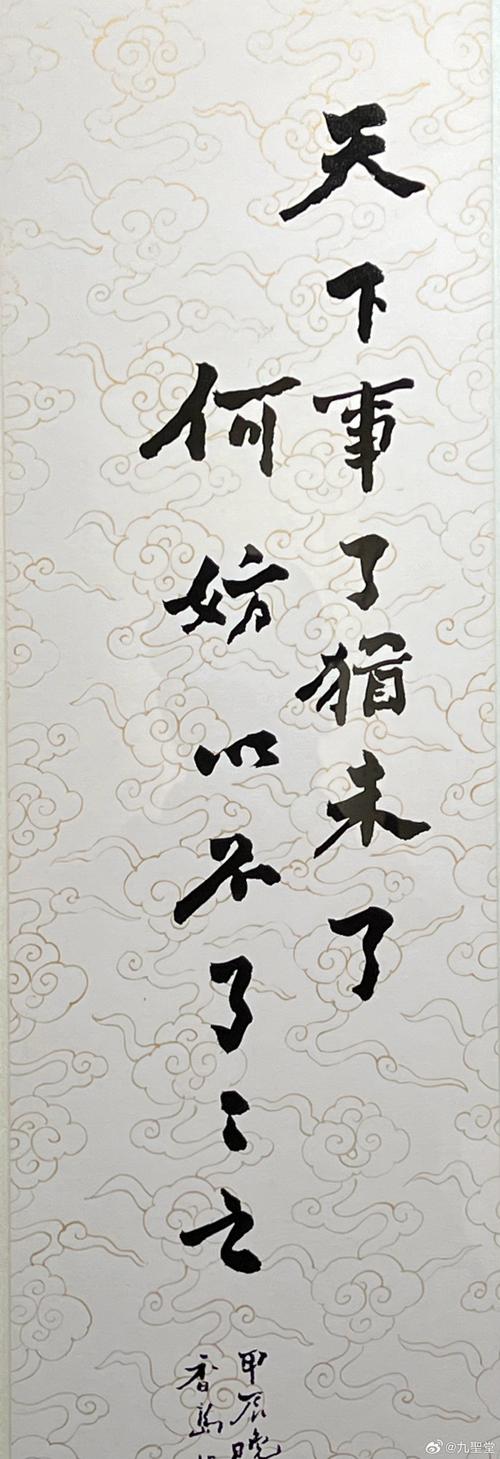 天下事了猶未了
何妨以不了々之
甲辰曉
香島
@九聖堂